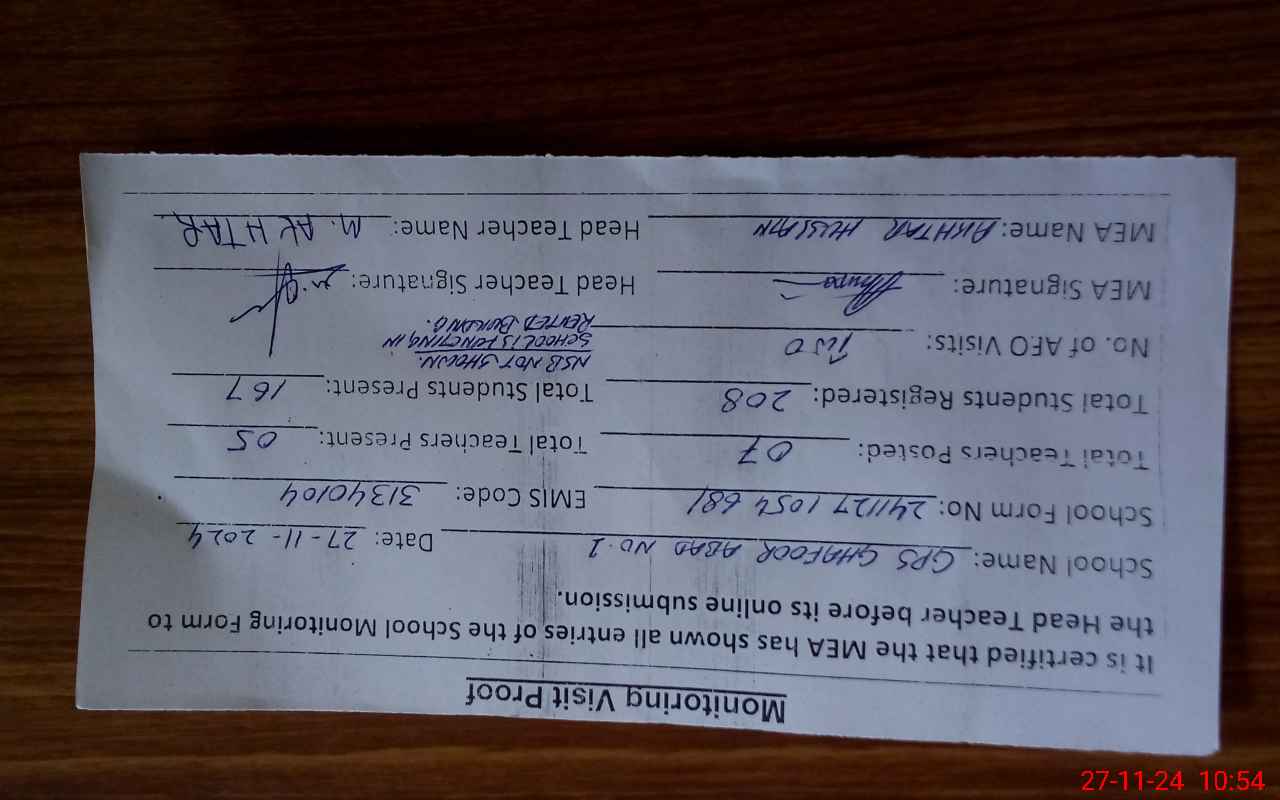 Monitoring Visit Proof
It is certified that the MEA has shown all entries of the School Monitoring Form to
the Head Teacher before its online submission.
School Name: GPS GHAFOOR ABAD NO.1 Date: 27-11-2024
School Form No: 241127 1054 681 EMIS Code: 31340104
Total Teachers Posted: 07 Total Teachers Present: 05
Total Students Registered: 208 Total Students Present: 167
NSB NOT SHOWN.
SCHOOL IS FUNCTING IN
RENTED BUILDING.
No. of AEO Visits: TWO
MEA Signature: Head Teacher Signature:
MEA Name: AKHTAR HUSSAIN Head Teacher Name: M. AKHTAR
27-11-24 10:54